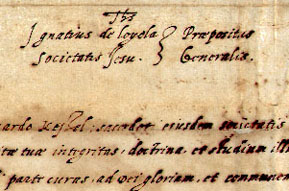 Jhs
Ignatius de Loyola } Præpositus
Societatis Jesu. } Generalis.
sacerdoti eiusdem societatis
tuæ integritas, doctrina, et studium
curas, ad Dei gloriam, et communem